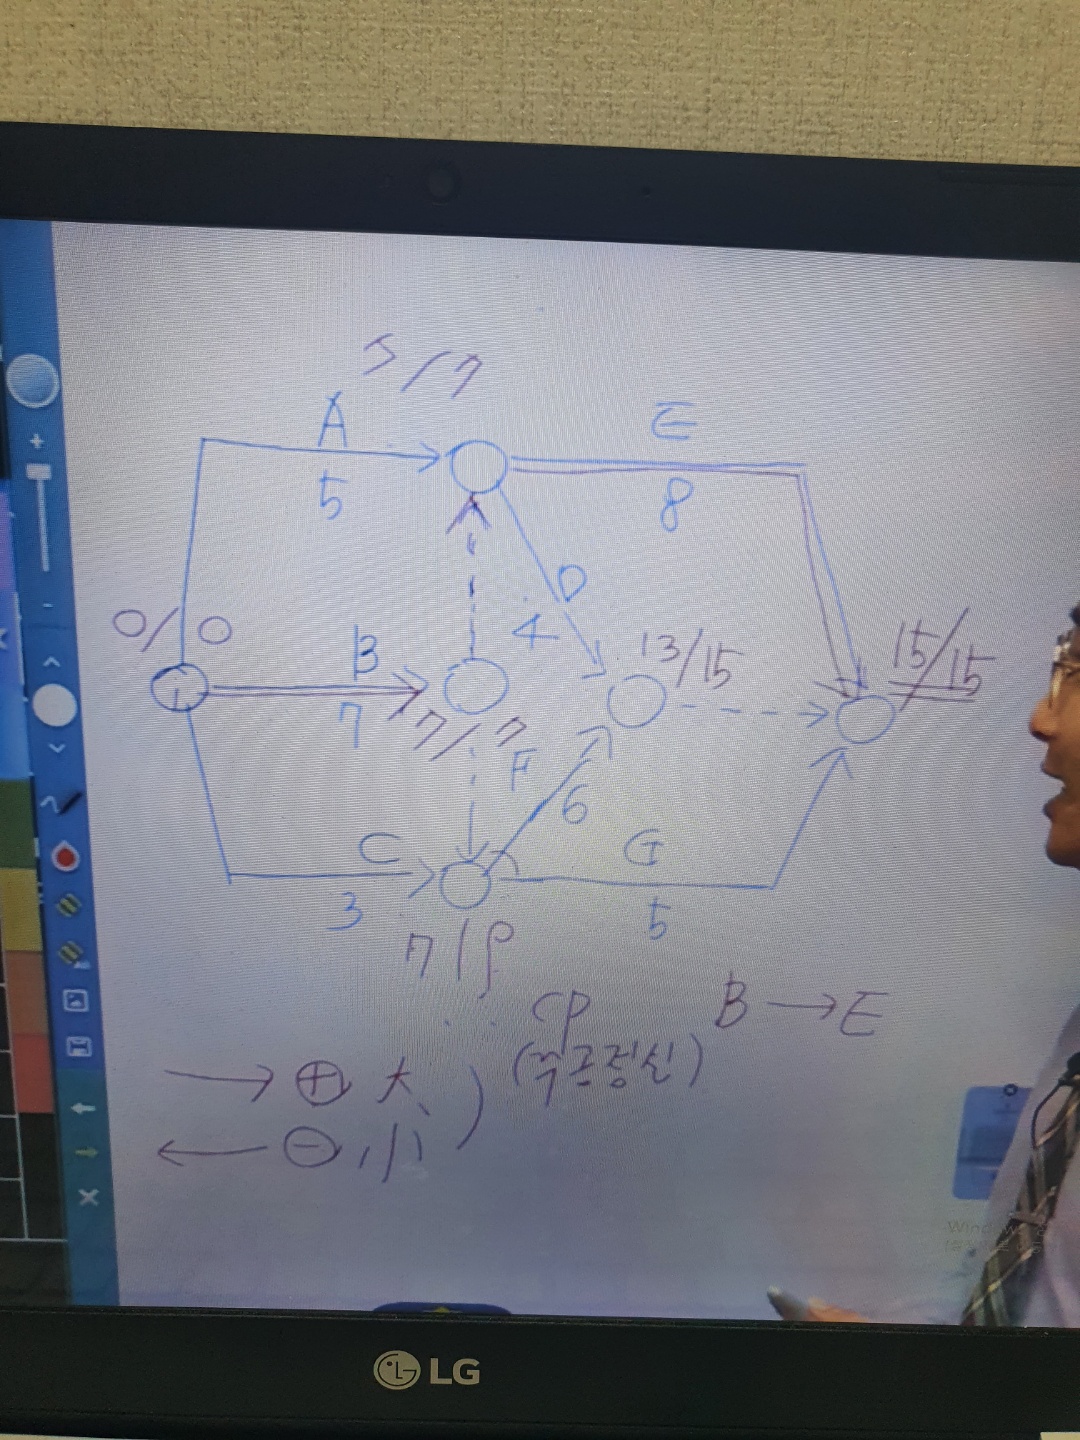 5/7
A
5
E
8
D
4
0/0
B
7
7/7
13/15
15/15
F
6
C
3
G
5
7/9
CP
B → E
(주공정선)
→ ⊕ 大
← ⊖, 小
LG